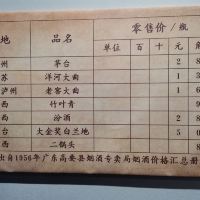 地 品名 零售价/瓶
单位 百 十 元 角
州 茅台 2 8
苏 洋河大曲 1
泸州 老窖大曲 1
西 竹叶青
西 汾酒 2 8
台 大金奖白兰地 5 0
西 二锅头 8
出自1956年广东高要县烟酒专卖局烟酒价格汇总册